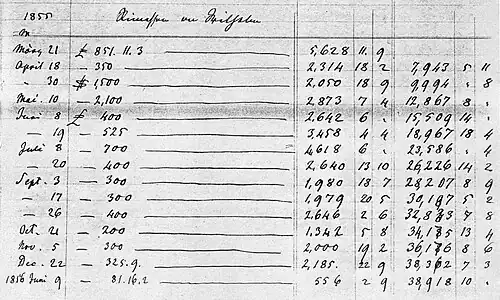 1855
März 21 £ 851. 11. 3 5,628 11. 9
April 18 — 350 2,314 18 2 7,943 5 11
— 30 $ 1,500 2,050 18 9 9,994 . 8
Mai. 10 — 2,100 2,873 7 4 12,867 8 .
Juni 8 £ 400 2,642 6 . 15,509 14 .
— 19 — 525 3,458 4 4 18,967 18 4
Juli 8 — 700 4,618 6 . 23,586 . 4
— 20 — 400 2,640 13 10 26,226 14 2
Sept. 3 — 300 1,980 18 7 28,207 8 9
— 17 — 300 1,979 20 5 30,187 5 2
— 26 — 400 2,646 2 6 32,833 7 8
Oct. 21 — 200 1,342 5 8 34,175 13 4
Nov. 5 — 300 2,000 19 2 36,176 8 6
Dec. 22 — 325. 9. 2,185. 22 9 38,362 7 3
1856 Juni 9 — 81. 16. 2 556 2 9 38,918 10 .